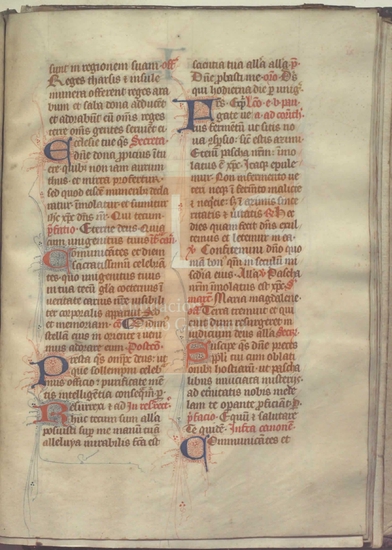 sunt in regionem suam. off
Reges tharsis et insule
munera offerent reges ara
bum et saba dona adducet
et adorabunt eum omnes reges
terre omnes gentes servient ei
Ecclesie tue qs Secreta
dne dona propicius intu
ere quibus non iam aurum
thus et mirra profertur
sed quod eisdem muneribus decla
ratur imolatur et sumitur
ihc xpc dns nr Qui tecum
pfatio Eterne deus Quia
cum unigenitus tuus
Communicantes et diem
sacratissimum celebra
tes quo unigenitus tuus
in tua tecum gla coeternus in
veritate carnis nre visibili
ter corporalis apparuit Sed
et memoriam Vidimus
stellam eius in oriente et veni
mus adorare eum Postco
Presta qs omps deus ut
que sollempni celeb
mus officio purificate men
tis intelligentia consequamur p
Resurrexi et ad
huc tecum sum alla
posuisti super me manum tuam
alleluya mirabilis facta est
sciencia tua alla alla ps
Dne probasti me oro Ds
qui hodierna die per unige
Frs Expur lco e b pau
gate ve a ad corinth
tus fermentum ut sitis no
va consparsio sicut estis azimi
Etenim pascha nrm imo
latus est xpc Itaque epule
mur Non in fermento ve
teri neque in fermento malicie
et nequicie sed in azimis since
ritatis et veritatis Hec
dies quam fecit dns exul
temus et letemur in ea
Confitemini dno quo
niam bonus quoniam in seculum mi
sedia eius Alla Pascha
nrm imolatus est xpc
Maria magdalene
Terra tremuit et qui
evit dum resurgeret in
iudicium deus alla Secre
Suscipe qs dne preces
ppli tui cum oblati
onibus hostiarum ut pascha
libus iniciata misteriis
ad eternitatis nobis mede
lam te operante proficiant p
pfacio Equum et salutare
Te quidem Infra canonem
Communicantes et